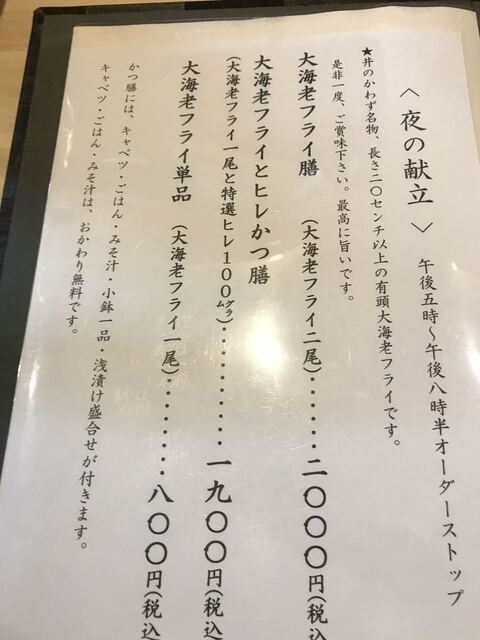 〈 夜の献立 〉 午後五時〜午後八時半オーダーストップ
★井のかわず名物、長さ二〇センチ以上の有頭大海老フライです。
是非一度、ご賞味下さい。最高に旨いです。
大海老フライ膳 (大海老フライ二尾)・・・・・・二〇〇〇円(税込
大海老フライとヒレかつ膳
(大海老フライ一尾と特選ヒレ100グラム)・・・・・・・・・・一九〇〇円(税込
大海老フライ単品 (大海老フライ一尾)・・・・・・・・・八〇〇円(税込
かつ膳には、キャベツ・ごはん・みそ汁・小鉢一品・浅漬け盛合せが付きます。
キャベツ・ごはん・みそ汁は、おかわり無料です。